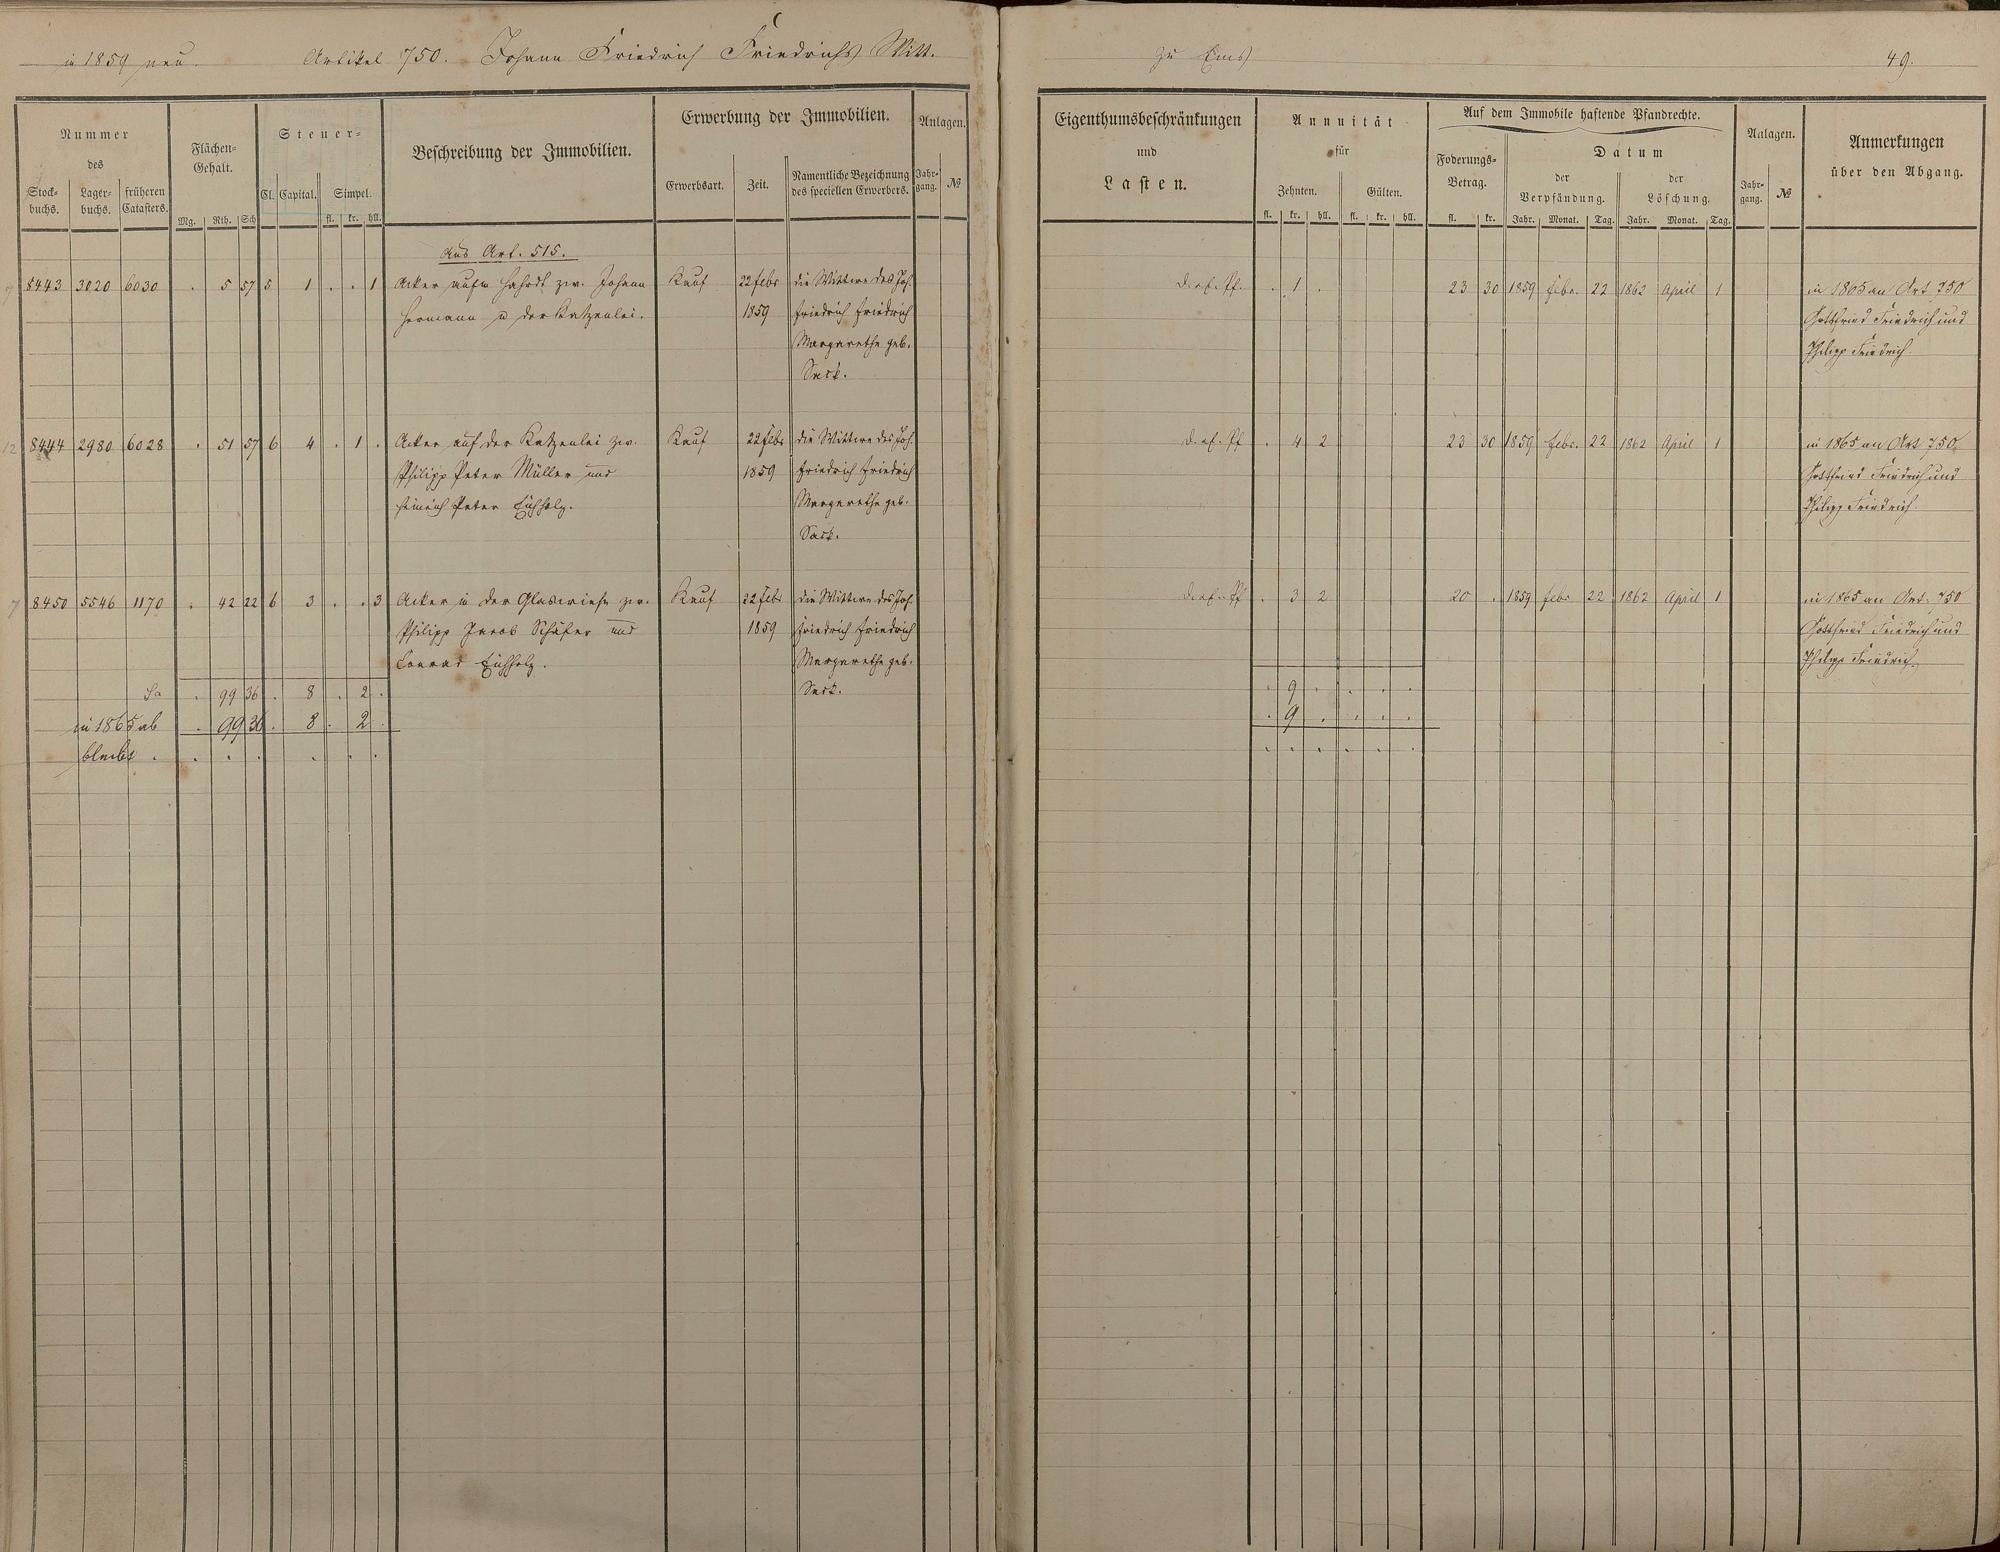 in 1859 neu. Artikel 750. Johann Friedrich Friedrichs Witt. zu Ems 49.
Nummer
des
Stock-
buchs.
Lager-
buchs.
früheren
Catasters.
Flächen-
Gehalt.
Mg. Rth. Sch
Steuer-
Cl. Capital. Simpel.
fl. kr. hll.
Beschreibung der Immobilien.
Erwerbung der Immobilien.
Erwerbsart. Zeit.
Namentliche Bezeichnung
des speciellen Erwerbers.
Anlagen.
Jahr-
gang.
№
Eigenthumsbeschränkungen
und
Lasten.
Annuität
für
Zehnten. Gülten.
fl. kr. hll. fl. kr. hll.
Auf dem Immobile haftende Pfandrechte.
Foderungs-
Betrag.
fl. kr.
Datum
der
Verpfändung.
Jahr. Monat. Tag.
der
Löschung.
Jahr. Monat. Tag.
Anlagen.
Jahr-
gang.
№
Anmerkungen
über den Abgang.
Aus Art. 515.
7 8443 3020 6030 . 5 57 5 1 . . 1 Acker aufm Hahrdt zw. Johann Kauf 22 Febr die Wittwe des Joh. . 1 . 23 30 1859 Febr. 22 1862 April 1 in 1865 an Art 750
Hermann u der Katzenlei. 1859 Friedrich Friedrich Gottfried Friedrich und
Margarethe geb. Philipp Friedrich.
Sack.
12 8444 2980 6028 . 51 57 6 4 . 1 . Acker auf der Katzenlei zw. Kauf 22 Febr die Wittwe des Joh. . 4 2 23 30 1859 Febr. 22 1862 April 1 in 1865 an Art 750
Philipp Peter Müller und 1859 Friedrich Friedrich Gottfried Friedrich und
Heinrich Peter Eichholz. Margarethe geb. Philipp Friedrich.
Sack.
7 8450 5546 1170 . 42 22 6 3 . . 3 Acker in der Glaswiese zw. Kauf 22 Febr die Wittwe des Joh. . 3 2 20 . 1859 Febr 22 1862 April 1 in 1865 an Art. 750
Philipp Jacob Schäfer und 1859 Friedrich Friedrich Gottfried Friedrich und
Conrad Eichholz. Margarethe geb. Philipp Friedrich.
Sa . 99 36 . 8 . 2 . Sack. . 9 . . . .
in 1865 ab . 99 36 . 8 . 2 . . 9 . . . .
bleibt . . . . . . . . . . . . . .